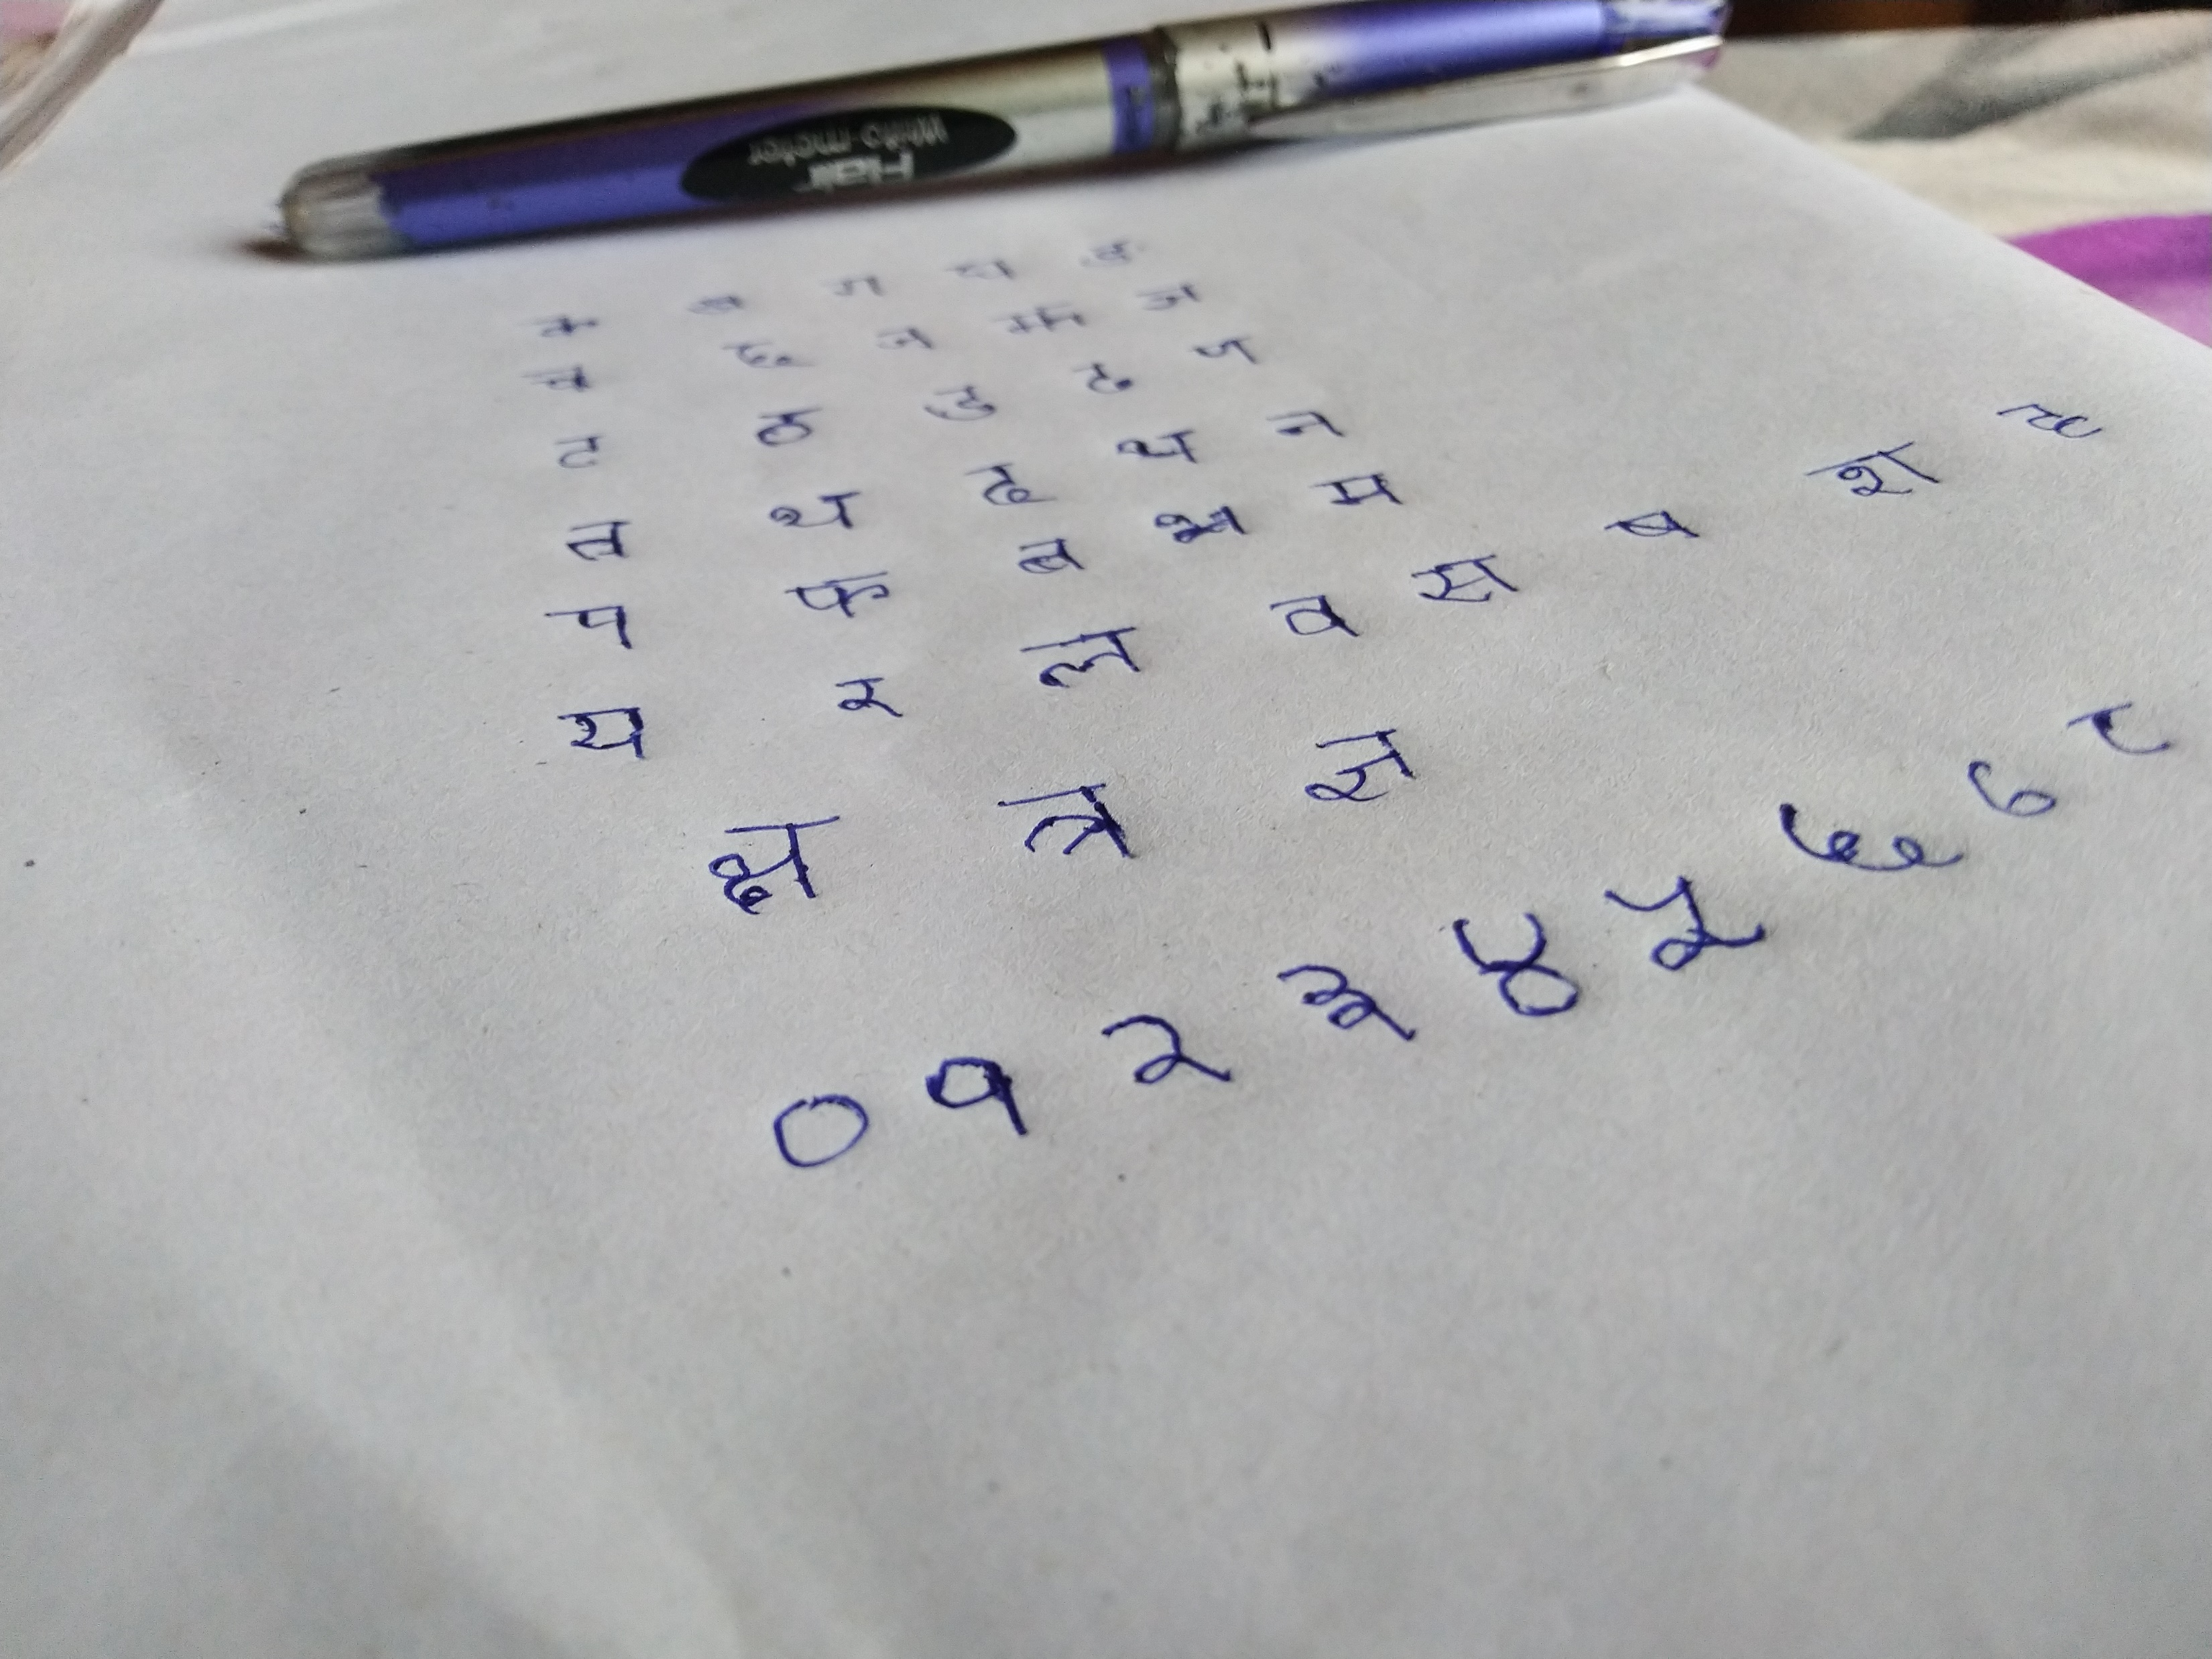 Hair
Write-meter
क ख ग घ ङ
च छ ज झ ञ
ट ठ ड ढ ण
त थ द ध न
प फ ब भ म
य र ल व स ष श ह
क्ष त्र ज्ञ
० १ २ ३ ४ ५ ६ ७ ८